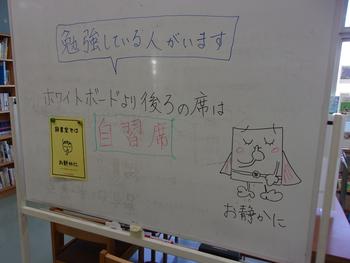 勉強している人がいます
ホワイトボードより後ろの席は
自習席
図書室では
お静かに
お静かに